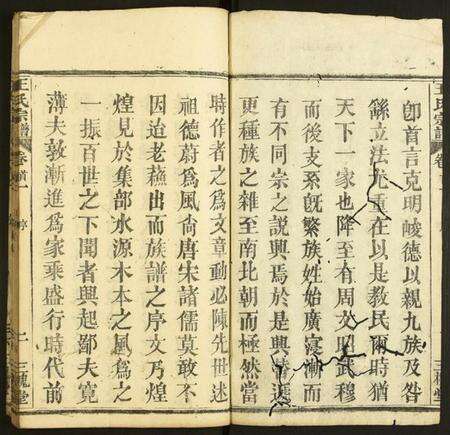 卽首言克明峻德以親九族及咎
繇立法尤重在以是教民爾時猶
天下一家也降至有周文昭武穆
而後支系旣繁族姓始廣寖漸而
有不同宗之説興焉於是興替遞
更種族之雜至南北朝而極然當
時作者之爲文章動必陳先世述
祖德蔚爲風尚唐宋諸儒莫敢不
因迨老蘇出而族譜之序文乃煌
煌見於集部水源木本之風爲之
一振百世之下聞者興起鄙夫寬
薄夫敦漸進爲家乘盛行時代前
王氏宗譜
卷首一
序
一
三槐堂
王氏宗譜
卷
三槐堂